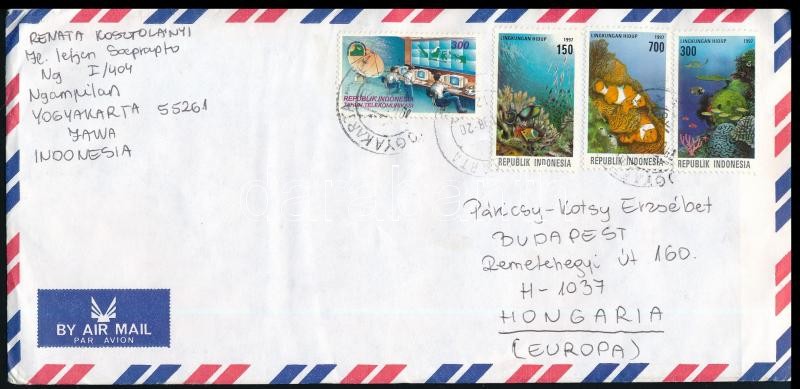 RENATA KOSZTOLÁNYI
Jl. letjen Soeprapto
Ng I/404
Ngampilan
YOGYAKARTA 55261
JAWA
INDONESIA
300
REPUBLIK INDONESIA
TAHUN TELEKOMUNIKASI
LINGKUNGAN HIDUP 1997
150
REPUBLIK INDONESIA
LINGKUNGAN HIDUP 1997
700
REPUBLIK INDONESIA
LINGKUNGAN HIDUP 1997
300
REPUBLIK INDONESIA
YOGYAKARTA
Páricsy-Kotsy Erzsébet
BUDAPEST
Remetehegyi út 160.
H-1037
HONGARIA
(EUROPA)
BY AIR MAIL
PAR AVION